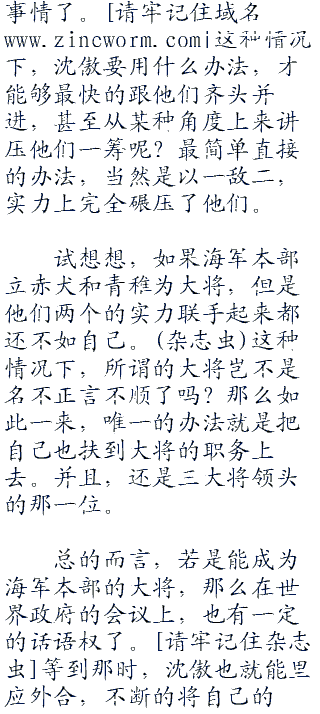 事情了。[请牢记住域名
www.zincworm.com|这种情况
下，沈傲要用什么办法，才
能够最快的跟他们齐头并
进，甚至从某种角度上来讲
压他们一筹呢？最简单直接
的办法，当然是以一敌二，
实力上完全碾压了他们。
试想想，如果海军本部
立赤犬和青稚为大将，但是
他们两个的实力联手起来都
还不如自己。(杂志虫)这种
情况下，所谓的大将岂不是
名不正言不顺了吗？那么如
此一来，唯一的办法就是把
自己也扶到大将的职务上
去。并且，还是三大将领头
的那一位。
总的而言，若是能成为
海军本部的大将，那么在世
界政府的会议上，也有一定
的话语权了。[请牢记住杂志
虫]等到那时，沈傲也就能里
应外合，不断的将自己的